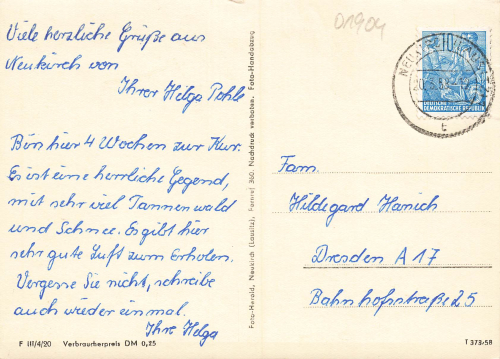 Viele herzliche Grüße aus
Neukirch von
Ihrer Helga Pohle
Bin hier 4 Wochen zur Kur.
Es ist eine herrliche Gegend,
mit sehr viel Tannenwald
und Schnee. Es gibt hier
sehr gute Luft zum Erholen.
Vergesse Sie nicht, schreibe
auch wieder einmal.
Ihre Helga
F III/4/20 Verbraucherpreis DM 0,25
Foto-Herold, Neukirch (Lausitz), Fernruf 360. Nachdruck verboten. Foto-Handabzug
01904
10
DEUTSCHE
DEMOKRATISCHE REPUBLIK
t
Fam.
Hildegard Hanich
Dresden A 17
Bahnhofstraße 25
T 373-58